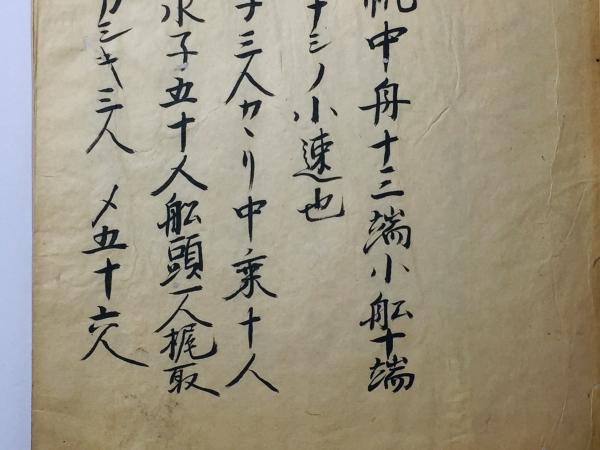 帆中舟十三端小船十端
ナシノ小速也
子三人カヽリ中乗十人
水子五十人船頭一人梶取
カシキ三人 〆五十六人